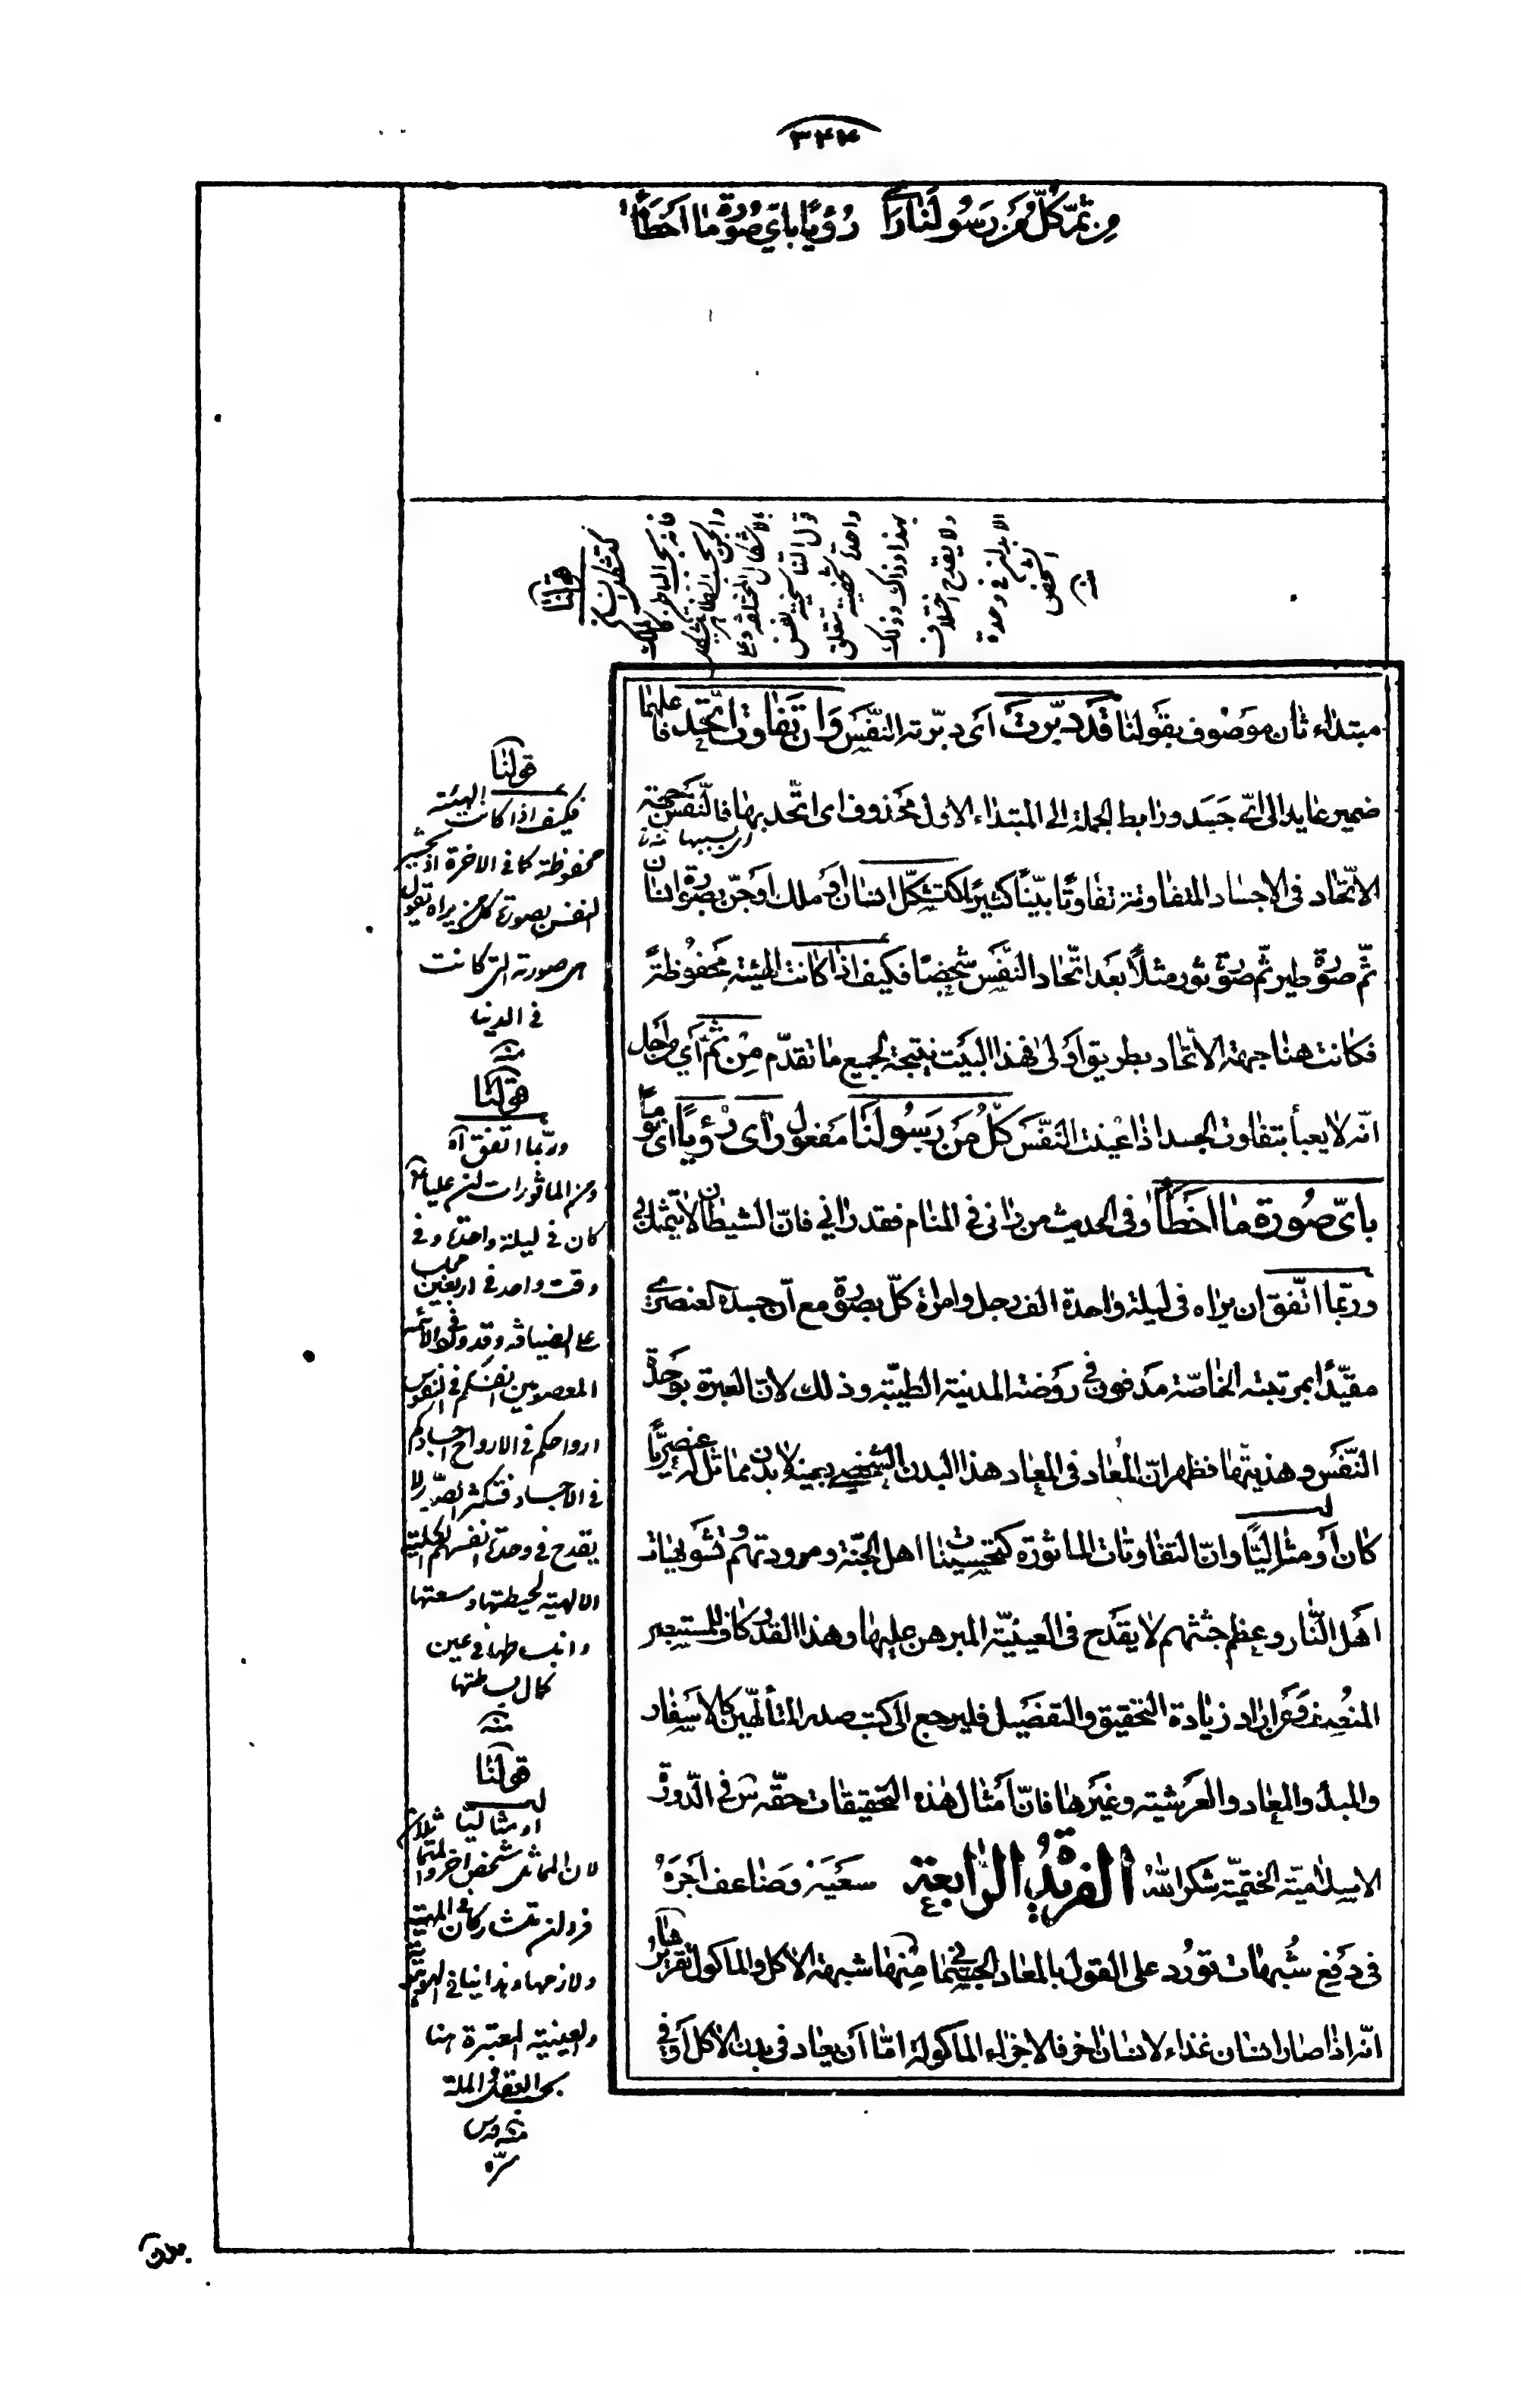 ٣٤٤
من ثمّ كلّ من رسولنا رأى رؤيا بأيّ صورة ما اخطأ
قولنا
كتشكل انسان
بالاشكال المختلفة
نفس
واحدة شخصية تتعلق
بهذا وذاك وذلك
ولا يقدح اختلاف
الابدان في وحدة
الشخص
منه
مبتداء ثان موصوف بقولنا قد دبّرت اى دبّرته النّفس وان تفاوت اتّحد فاعلهما
ضمير عايد الى اىّ جسد ورابط الجملة الى المبتداء الاول محذوف اى اتّحد بها فالنّفس جهة
اى بسببها
الاتّحاد فى الاجساد المتفاوتة تفاوتًا بيّنًا كثيرًا كتشكّل انسان أو ملك او جنّ بصورة انسان
ثمّ صورة طير ثمّ صورة ثور مثلًا بعد اتّحاد النّفس شخصًا فكيف اذا كانت الهيئة محفوظةً
فكانت هنا جهة الاتّحاد بطريق أولى فهذا البيت نتيجة لجميع ما تقدّم من ثمّ أي من اجل
انّه لا يعبأ بتفاوت الجسد اذا عينت النّفس كلّ من رسولنا مفعول رأى رؤيا اى نومًا
بايّ صورة ما اخطأ وفى الحديث من رانى في المنام فقد راني فانّ الشيطان لا يتمثل بي
وربّما اتّفق ان يراه فى ليلة واحدة الف رجل وامراة كلّ بصورة مع أن جسده العنصرى
مقيّدًا بمرتبته الخاصّة مدفون فى روضة المدينة الطيّبة وذلك لانّ العبرة بوحدة
النّفس وهذيتّها فظهر انّ المعاد فى المعاد هذا البدن الشخصى بعينه لا بدن مماثل له عنصريًّا
كان أو مثاليًّا وانّ التفاوتات الماثورة كتحسينات اهل الجنّة ومرودتهم وتشويهات
اهل النّار وعظم جثثهم لا يقدح فى العينيّة المبرهن عليها وهذا القدر كاف للمستبصر
المنصف ومن اراد زيادة التحقيق والتفصيل فليرجع الى كتب صدر المتألّهين كالاسفار
والمبدء والمعاد والعرشية وغيرها فانّ أمثال هذه التحقيقات حقّه س فى الدّورة
الاسلاميّة الختميّة شكر الله سعيه وضاعف اجره الفريدة الرّابعة
فى دفع شبهات تورد على القول بالمعاد الجسمانى منها شبهة الاكل والماكول تقريرها
انّه اذا صار انسان غذاء لانسان اخر فالاجزاء الماكولة امّا أن يعاد فى بدن الاكل أو فى
قولنا
فكيف اذا كانت الهيئة
محفوظة كما فى الاخرة اذ تحشر
النفس بصورة كل من يراه يقول
هى صورته التى كانت
فى الدنيا
منه
قولنا
وربّما اتفق آه
ومن الماثورات ان عليا ع
كان فى ليلة واحدة وفى
وقت واحد فى اربعين
على الضيافة وقد ورد فى الائمة
المعصومين انفسكم فى النفوس
ارواحكم فى الارواح اجسادكم
فى الاجساد فتكثر الصور لا
يقدح فى وحدة انفسهم الكلية
الالهية لحيطتها وسعتها
وانبساطها فى عين
كمال بساطتها
منه
قولنا
او مثاليا
لان المماثل شخص اخر
فرد ان تشاركا فى المهية
ولازمها وهذا ينافى الهوهوية
والعينية المعتبرة هنا
بحسب العقل والملة
منه قدس
سرّه